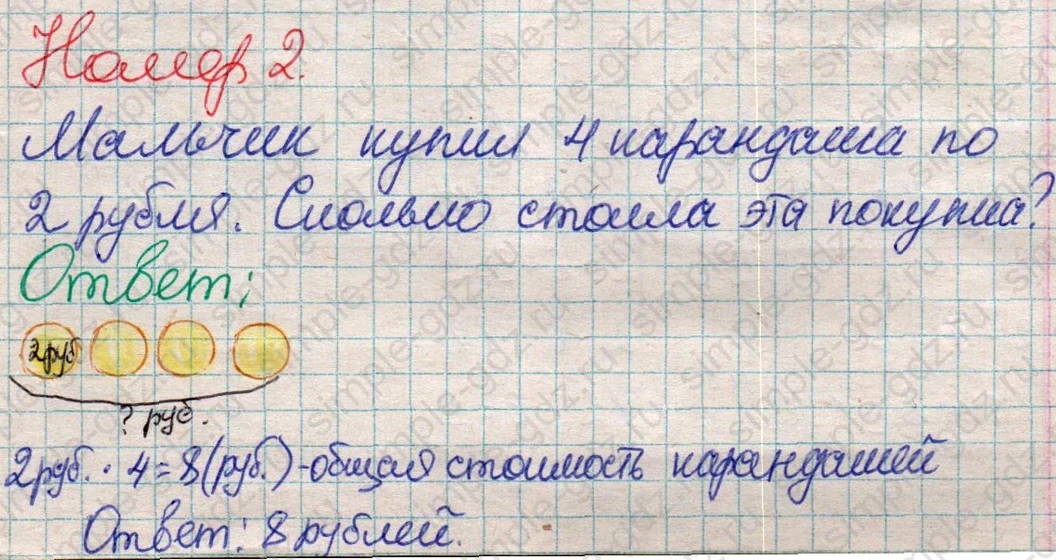 Номер 2.
Мальчик купил 4 карандаша по
2 рубля. Сколько стоила эта покупка?
Ответ:
2 руб.
? руб.
2 руб. · 4 = 8 (руб.) - общая стоимость карандашей
Ответ: 8 рублей.
simple-gdz.ru